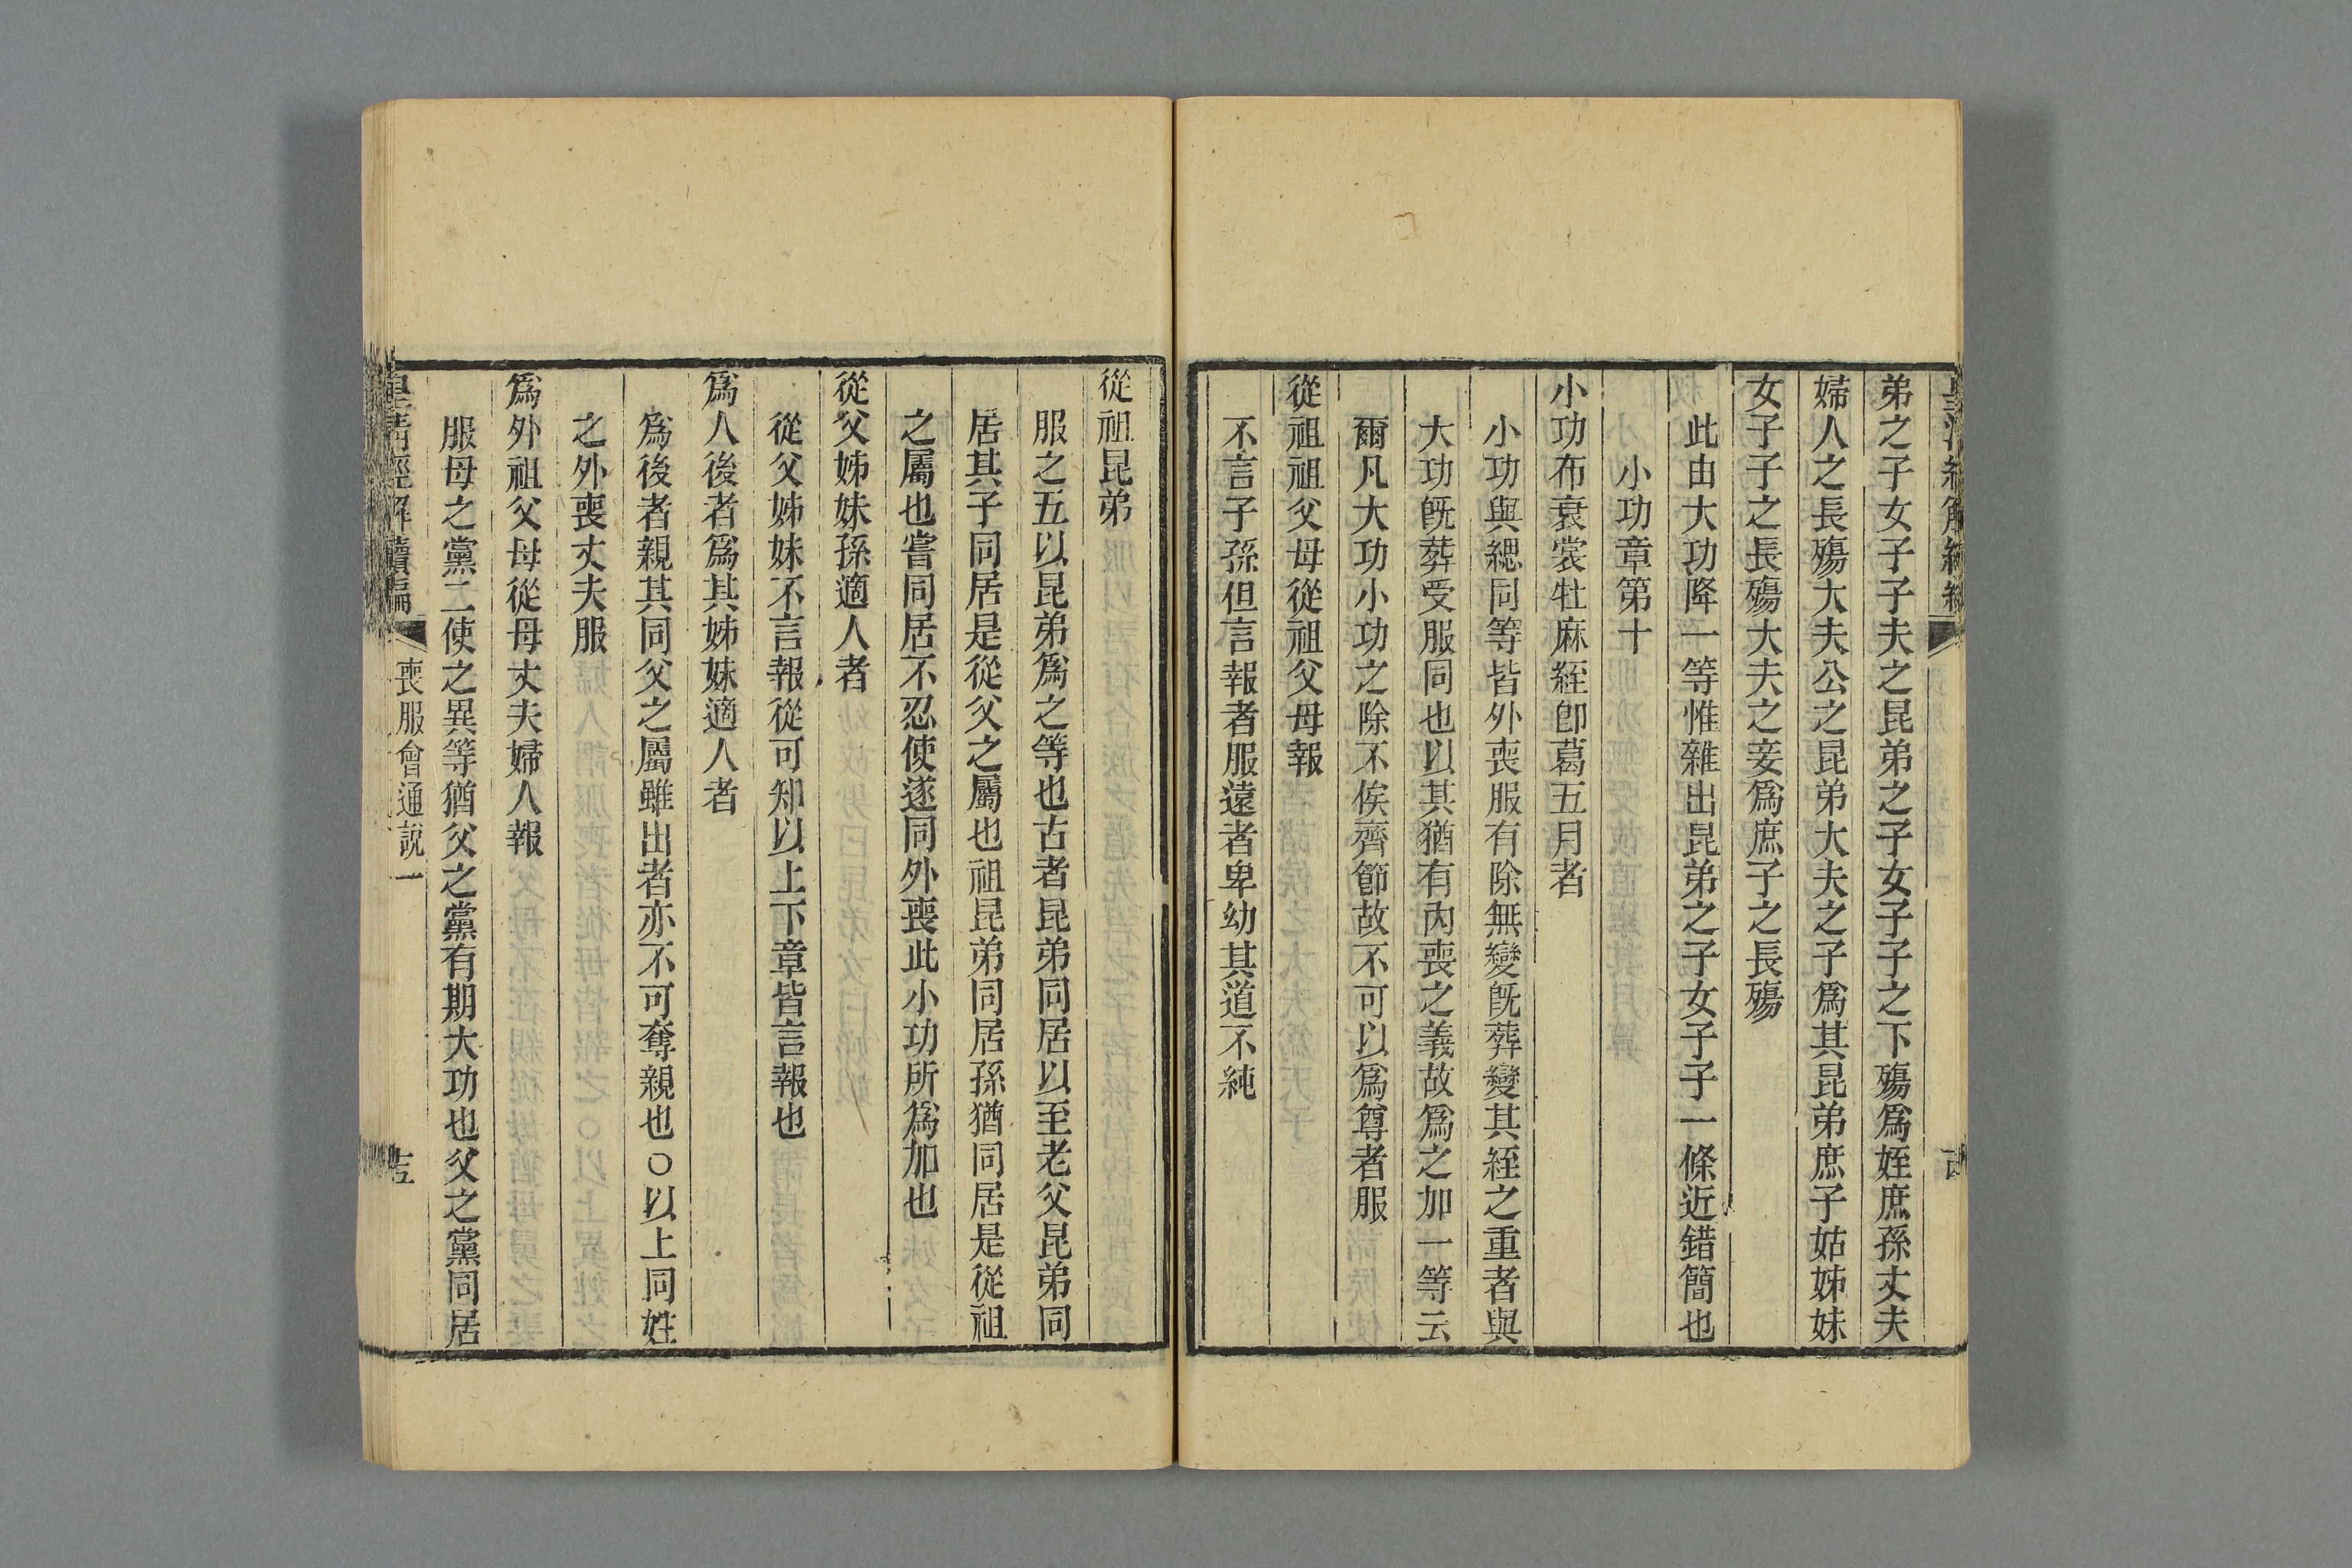 弟之子女子子夫之昆弟之子女子子之下殤爲姪庶孫丈夫
婦人之長殤大夫公之昆弟大夫之子爲其昆弟庶子姑姊妹
女子子之長殤大夫之妾爲庶子之長殤
此由大功降一等惟雜出昆弟之子女子子一條近錯簡也
小功章第十
小功布衰裳牡麻絰卽葛五月者
小功與緦同等皆外喪服有除無變旣葬變其絰之重者與
大功旣葬受服同也以其猶有內喪之義故爲之加一等云
爾凡大功小功之除不俟齊節故不可以爲尊者服
從祖祖父母從祖父母報
不言子孫但言報者服遠者卑幼其道不純
從祖昆弟
服之五以昆弟爲之等也古者昆弟同居以至老父昆弟同
居其子同居是從父之屬也祖昆弟同居孫猶同居是從祖
之屬也嘗同居不忍使遂同外喪此小功所爲加也
從父姊妹孫適人者
從父姊妹不言報從可知以上下章皆言報也
爲人後者爲其姊妹適人者
爲後者親其同父之屬雖出者亦不可奪親也○以上同姓
之外喪丈夫服
爲外祖父母從母丈夫婦人報
服母之黨二使之異等猶父之黨有期大功也父之黨同居
皇清經解續編
喪服會通說一